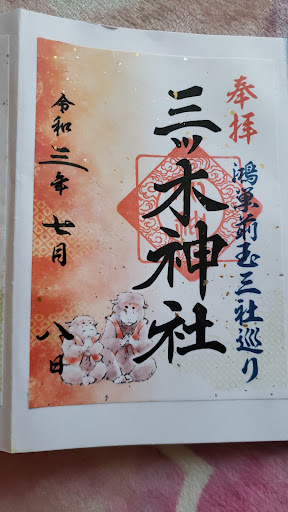 奉拝
鴻巣前玉三社巡り
三ッ木神社
令和三年七月八日